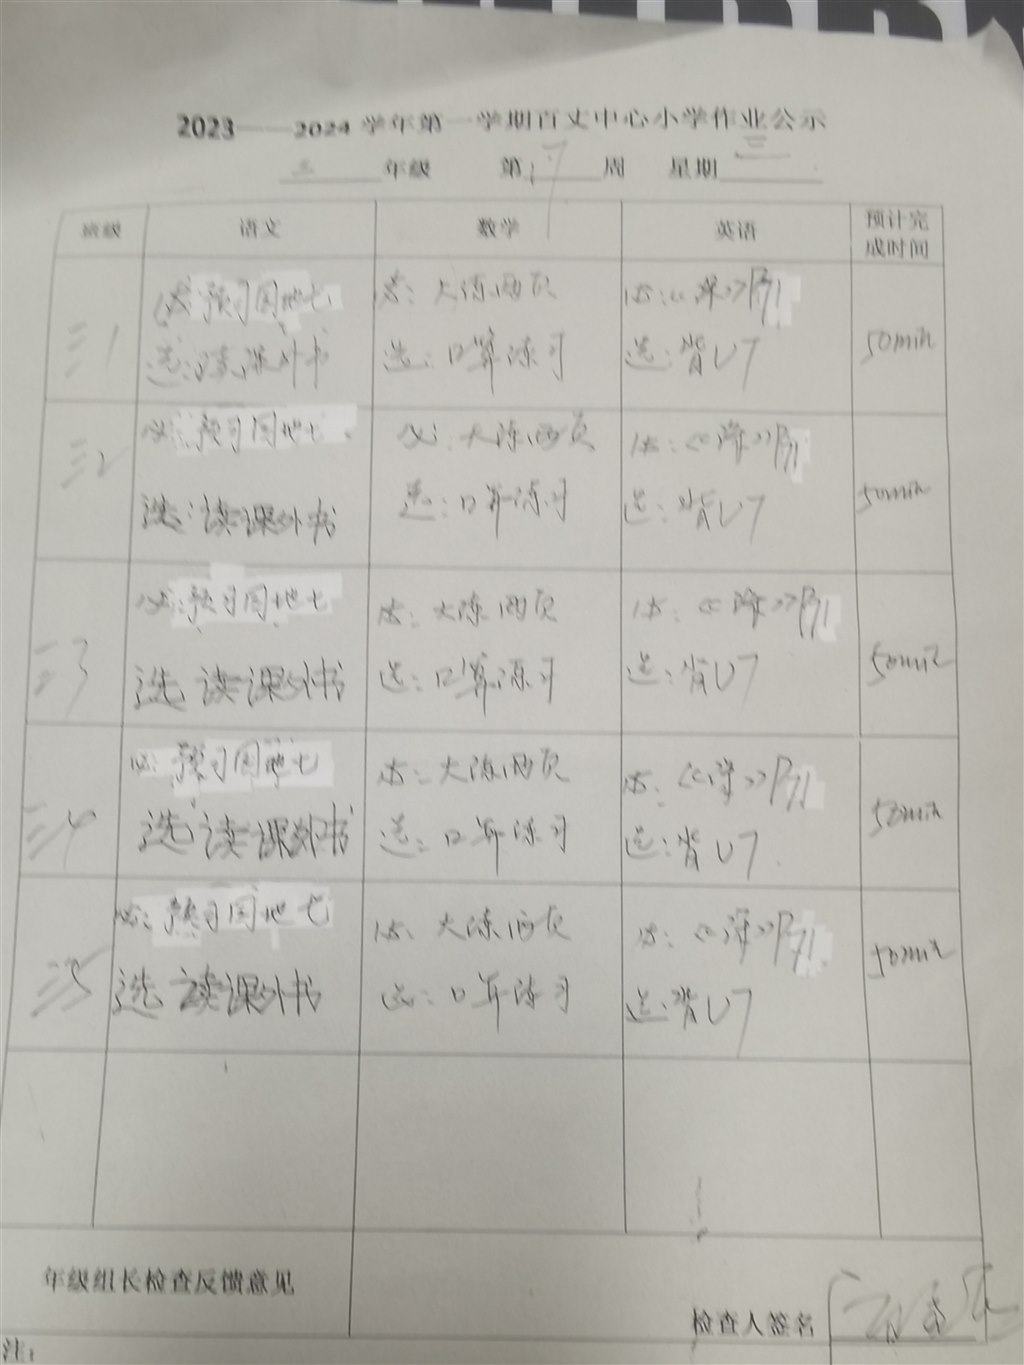 2023——2024学年第一学期百丈中心小学作业公示
三 年级 第17周 星期三
班级 语文 数学 英语 预计完成时间
三1 必:预习园地七 必:大练两页 必:《课》P71 50min
选:读课外书 选:口算练习 选:背U7
三2 必:预习园地七 必:大练两页 必:《课》P71 50min
选:读课外书 选:口算练习 选:背U7
三3 必:预习园地七 必:大练两页 必:《课》P71 50min
选 读课外书 选:口算练习 选:背U7
三4 必:预习园地七 必:大练两页 必:《课》P71 50min
选 读课外书 选:口算练习 选:背U7
三5 必:预习园地七 必:大练两页 必:《课》P71 50min
选 读课外书 选:口算练习 选:背U7
年级组长检查反馈意见
检查人签名
注: